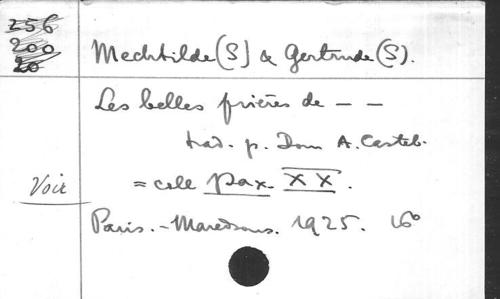 256
200
20
Mechtilde (S) & Gertrude (S).
Les belles prières de — —
trad. p. Dom A. Casteb.
Voir
= coll Pax XX.
Paris. - Maredsous. 1925. 16°